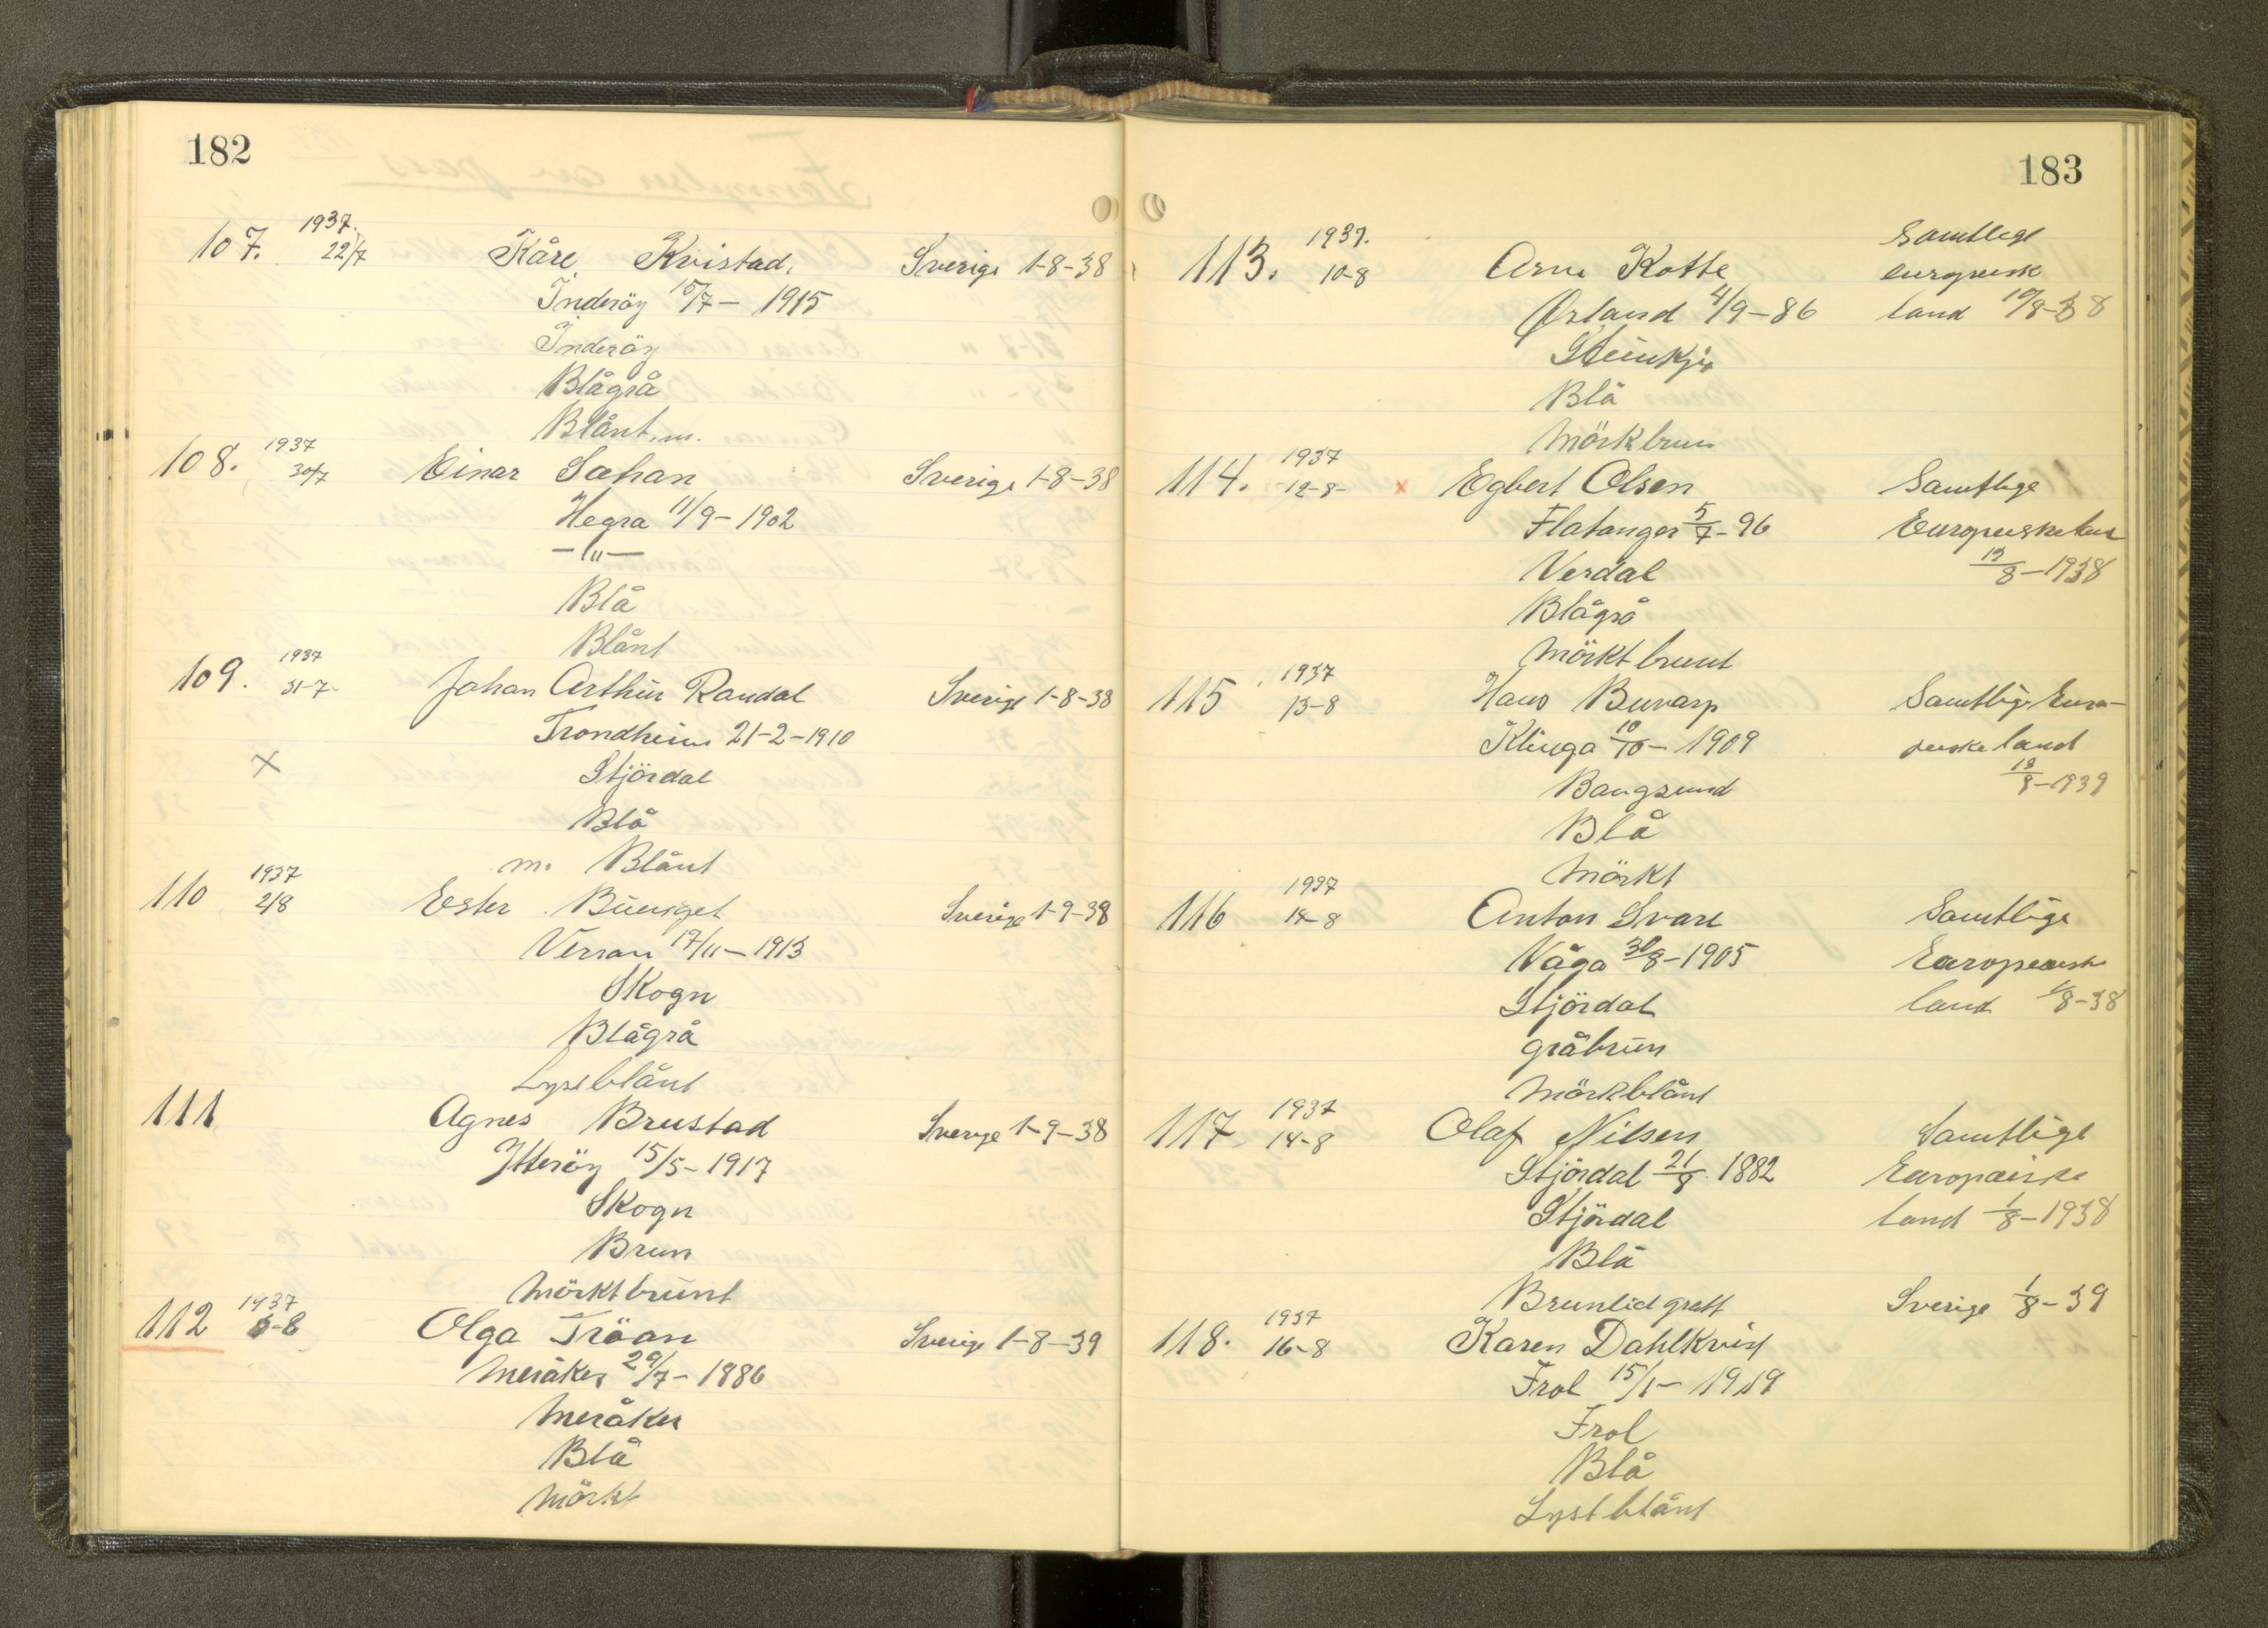 182
107. 1937. 22/7 Kåre Kvistad, Sverige 1-8-38
Inderöy 15/7 - 1915
Inderöy
Blågrå
Blånt. m.
108. 1937 30/7 Einar Sæhan Sverige 1-8-38
Hegra 11/9 - 1902
-"-
Blå
Blånt
109. 1937 31-7 Johan Arthur Randal Sverige 1-8-38
Trondheim 21-2-1910
X Stjördal
Blå
m. Blånt
110 1937 2/8 Ester Sverige 1-9-38
Verran 17/11 - 1913
Skogn
Blågrå
Lyseblånt
111 Agnes Brustad Sverge 1-9-38
Ytteröy 15/5 - 1917
Skogn
Brun
Mörktbrunt
112 1937 -8 Olga Tröan Sverige 1-8-39
Meråker 29/7 - 1886
Meråker
Blå
Mörkt
183
113. 1937. 10-8 Arne Kotte Samtlige
europeisk
Ørland 4/9 - 86 land 10/8-38
Steinkjer
Blå
Mörkbrun
114. 1937 12-8- x Egbert Olsen Samtlige
Flatanger 5/7 - 96 Europeiske
Verdal 13/8 - 1938
Blågrå
Mörkt brunt
115 1937 13-8 Hans Buvarp Samtlige Euro-
Klinga 10/10 - 1909 peiske land
Bangsund 18/8 - 1939
Blå
Mörkt
116 1937 14-8 Anton Svare Samtlige
Våga 30/8 - 1905 Europeiske
Stjördal land /8-38
gråbrun
Mörkblånt
117 1937 14-8 Olaf Nilsen Samtlige
Stjördal 21/8 1882 Europæiske
Stjördal land 1/8 - 1938
Blå
Brunlid grått Sverige 1/8 - 39
118. 1937 16-8 Karen Dahlkvist
Frol 15/1 - 1919
Frol
Blå
Lyst blånt